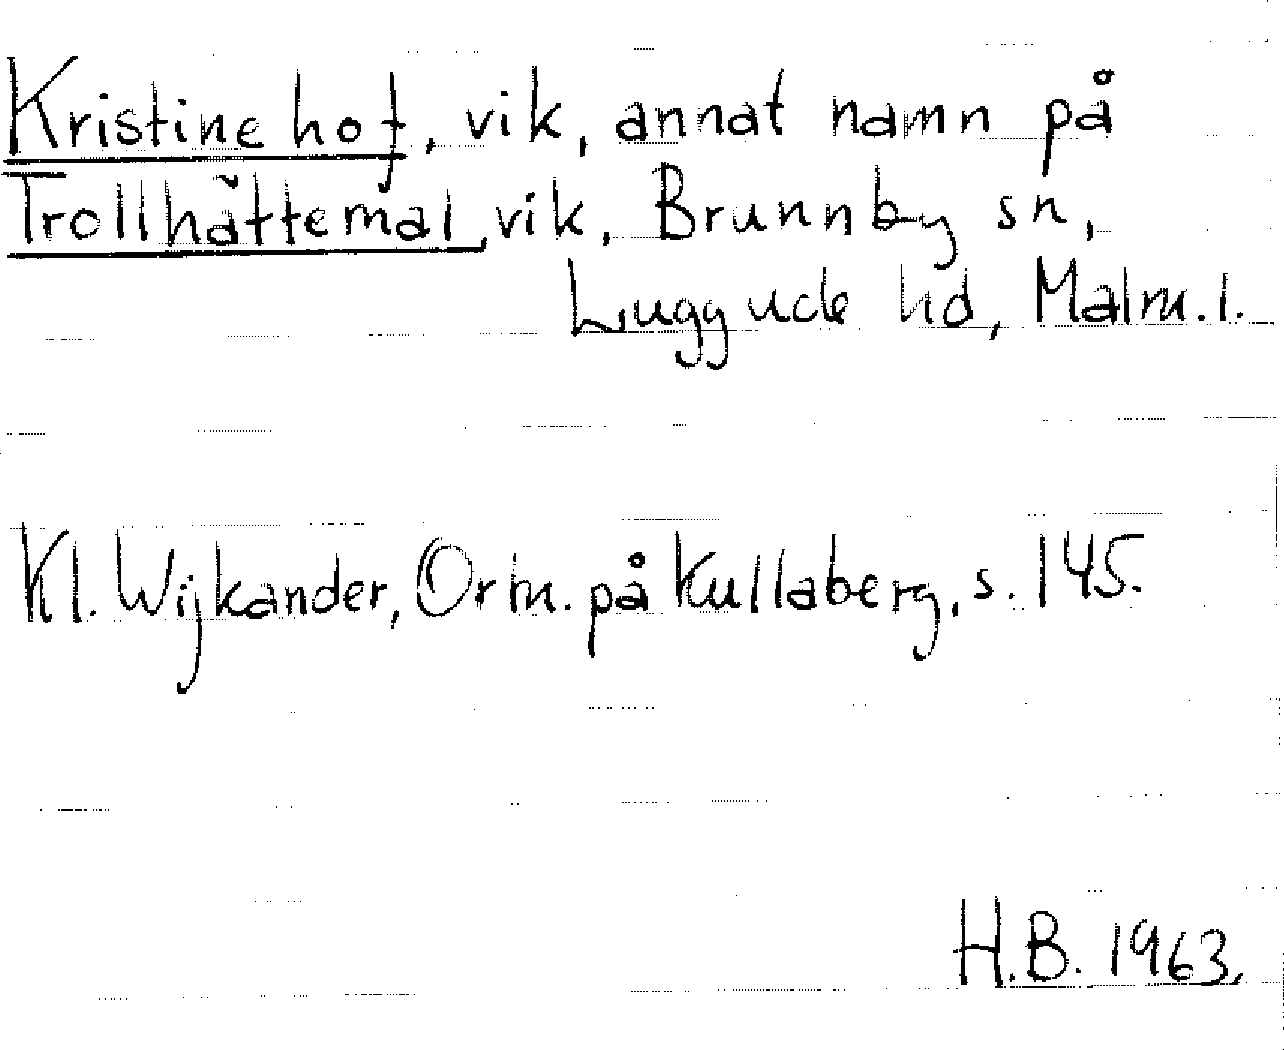 Kristinehof, vik, annat namn på
Trollhättemal, vik, Brunnby sn,
Luggude hd, Malm. l.
Kl. Wijkander, Orm. på Kullaberg, s. 145.
H.B. 1963.